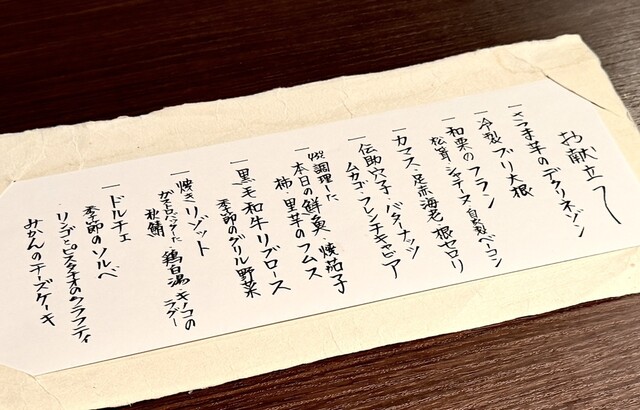 お献立て
一 さつま芋のデクリネゾン
一 冷製 ブリ大根
一 和栗のフラン
松茸・シャテーヌ 自家製ベーコン
一 カマス・足赤海老 根セロリ
一 伝助穴子・バターナッツ
ムカゴ・フレンチキャビア
一 本日の鮮魚 焼茄子
柿・里芋のフムス
一 黒毛和牛リブロース
季節のグリル野菜
一 焼きリゾット
鶏白湯・キノコの
ラグー
秋鯖
一 ドルチェ
季節のソルベ
リンゴとピスタチオのクラフティ
みかんのチーズケーキ